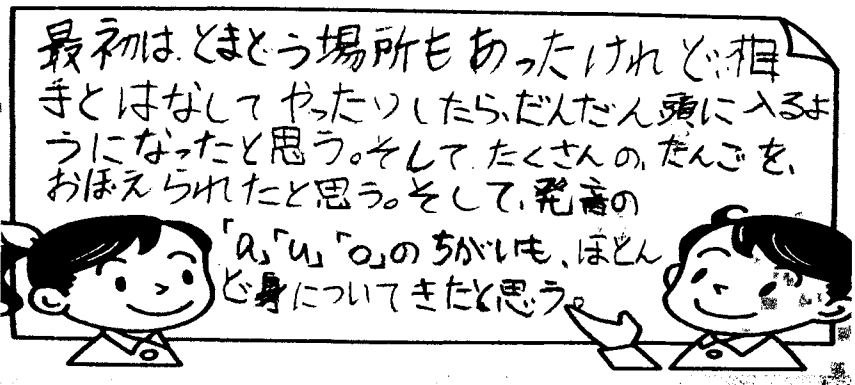 最初は、とまどう場所もあったけれど、相
手とはなしてやったりしたら、だんだん頭に入るよ
うになったと思う。そして、たくさんの、たんごを、
おぼえられたと思う。そして、発音の
「a」「u」「o」のちがいも、ほとん
ど身についてきたと思う。